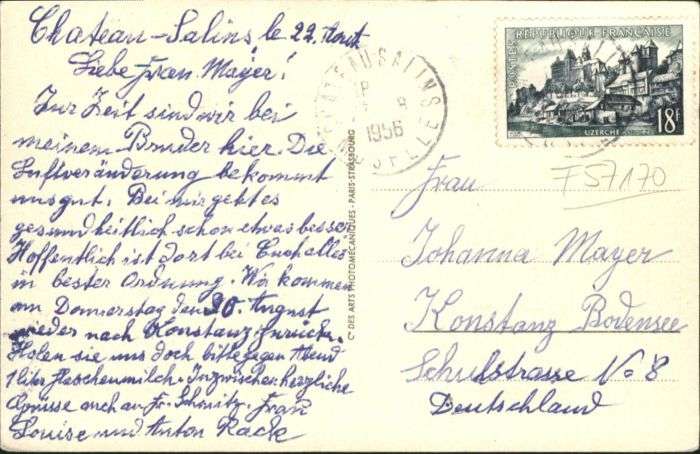 Chateau-Salins le 22. Août
Liebe Frau Mayer!
Zur Zeit sind wir bei
meinem Bruder hier. Die
Luftveränderung bekommt
uns gut. Bei mir geht es
gesundheitlich schon etwas besser
Hoffentlich ist dort bei Euch alles
in bester Ordnung. Wir kommen
am Donnerstag den 30. August
wieder nach Konstanz zurück.
Holen sie uns doch bitte gegen Abend
1 liter Flaschenmilch. Inzwischen herzliche
Grüsse auch an Fr. Schmitz. Frau
Louise und Anton Rack
CHATEAU SALINS
1956
MOSELLE
Cie DES ARTS PHOTOMECANIQUES - PARIS-STRASBOURG
POSTES RÉPUBLIQUE FRANÇAISE
UZERCHE
18F
F57170
Frau
Johanna Mayer
Konstanz Bodensee
Schulstrasse No 8
Deutschland